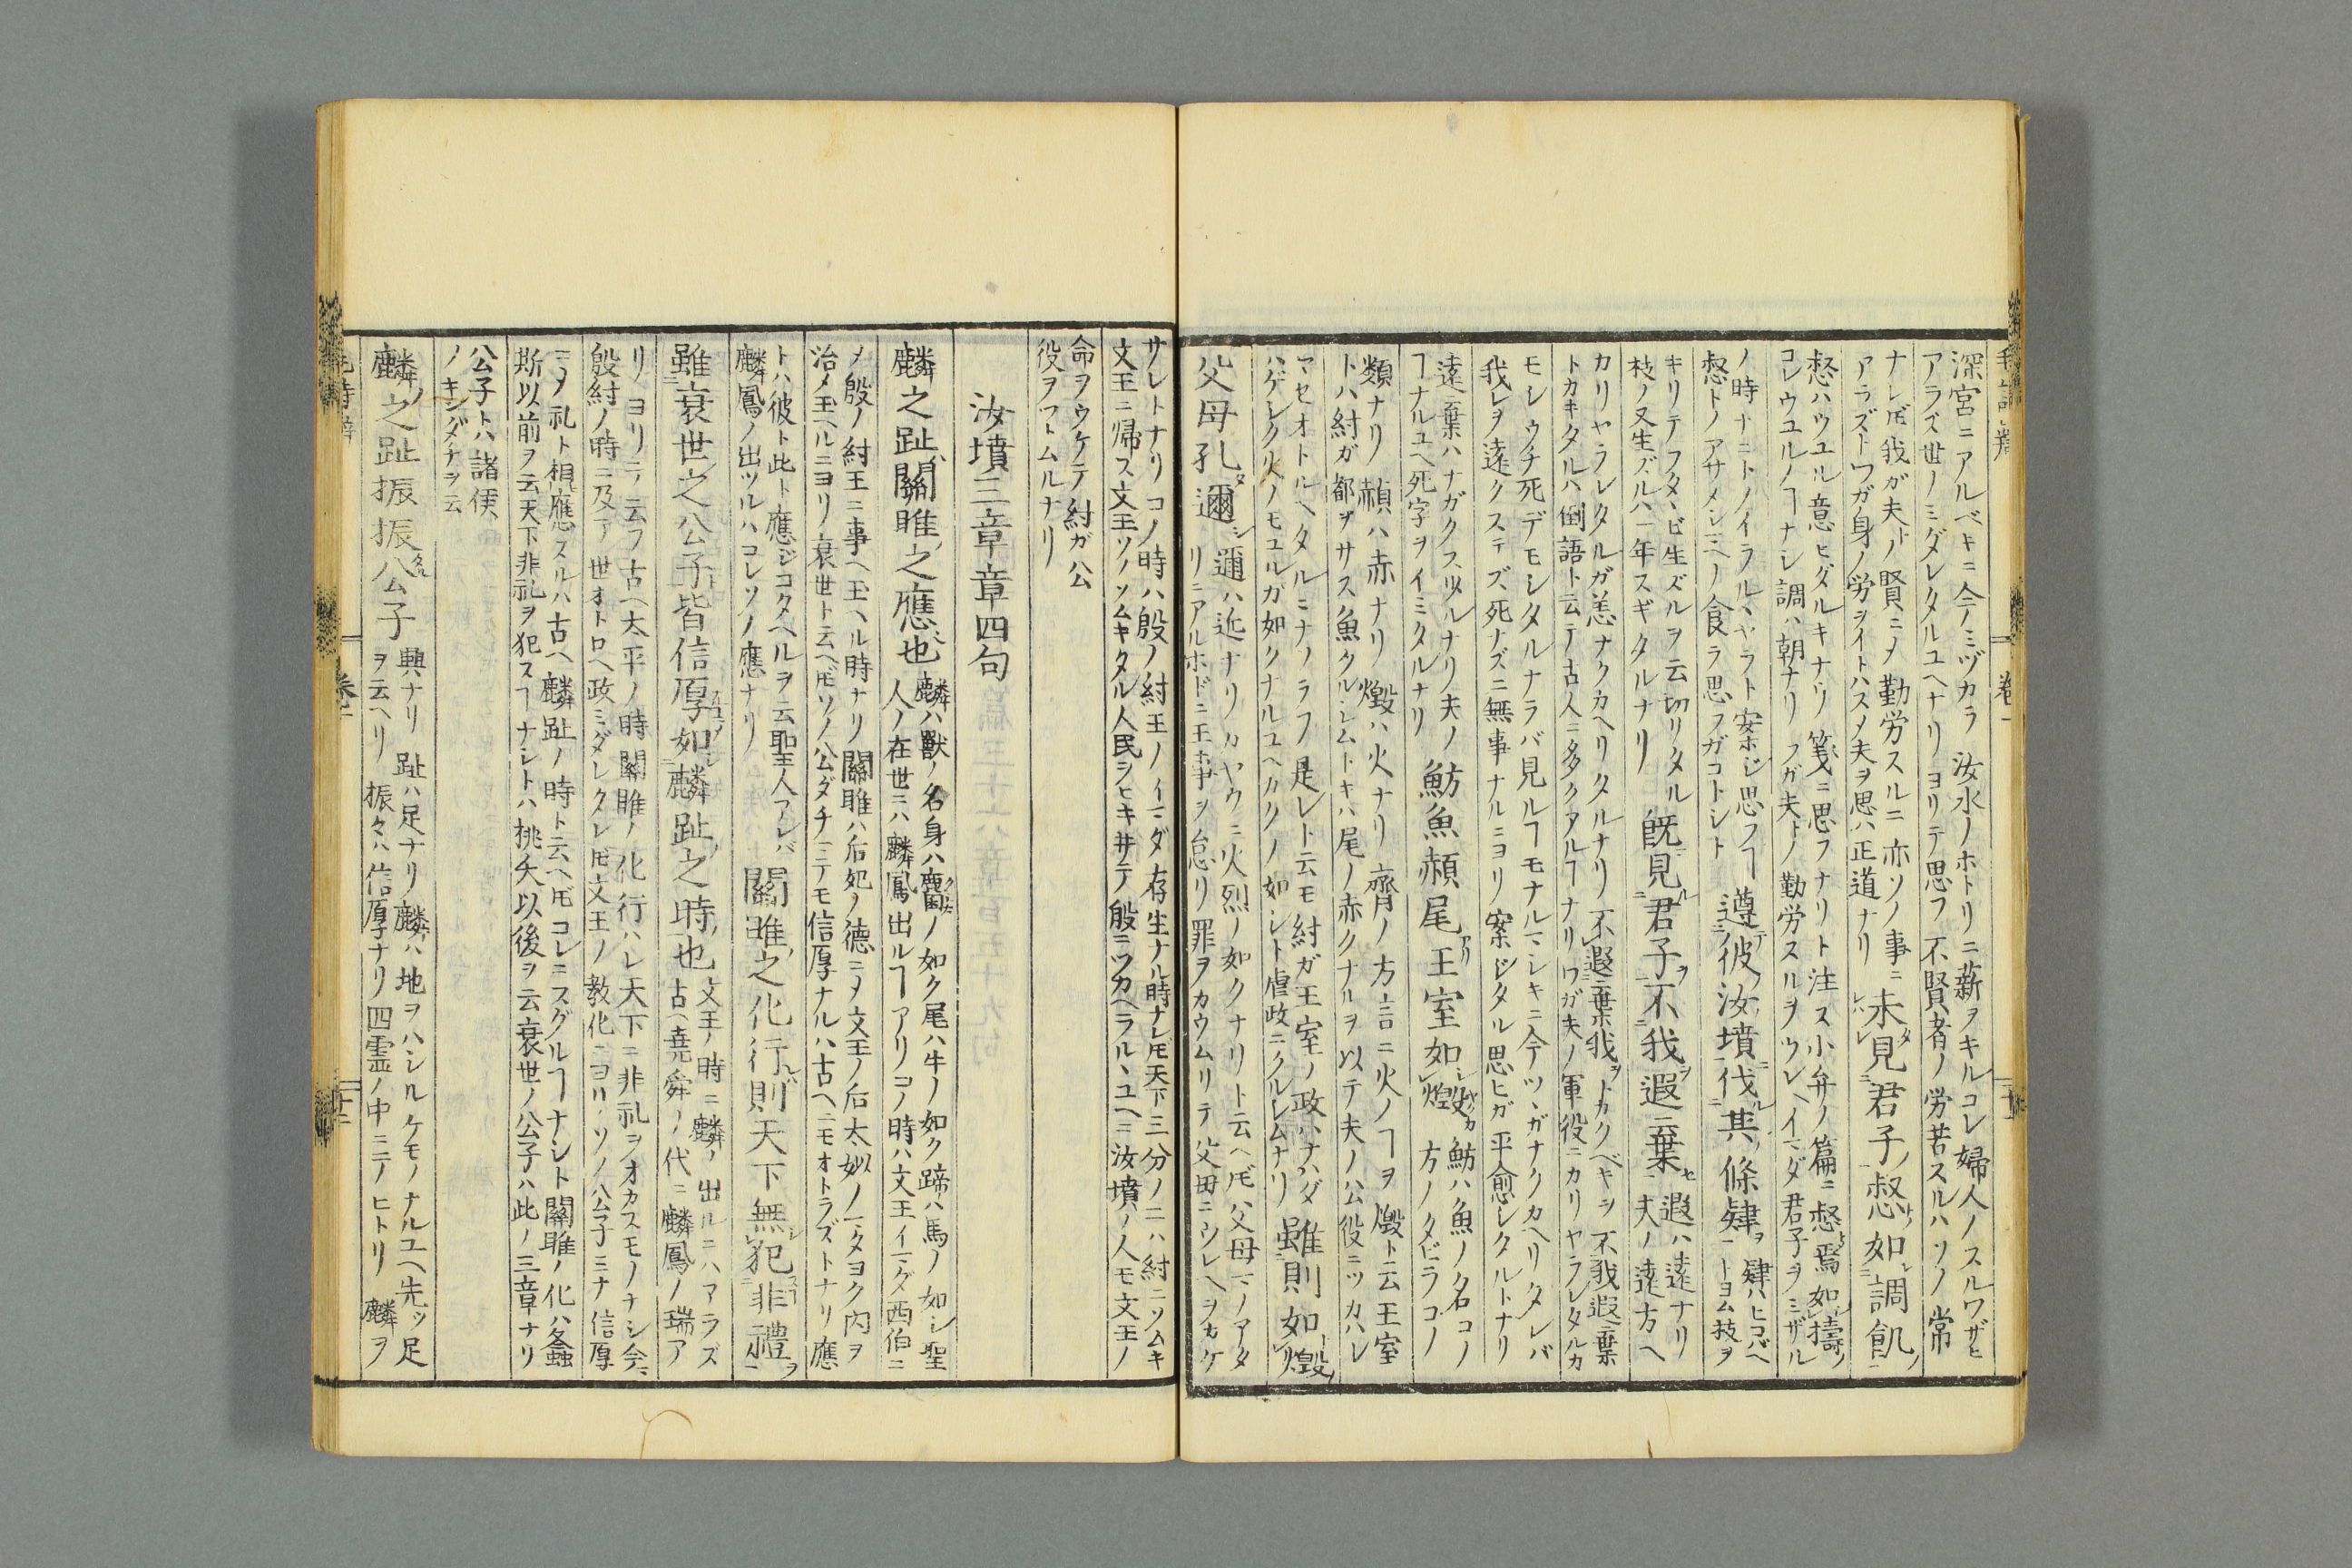 深宮ニアルベキニ今ノミヅカラ汝水ノホトリニ薪ヲキルコレ婦人ノスルワザヒ
アラズ世ノミダレタルユヘナリヨリテ思フ不賢者ノ労苦スルハソノ常
ナレ𪜈我ガ夫ノ賢ニメ勤労スルニ亦ソノ事ニ
アラズトワガ身ノ労ヲイトハスメ夫ヲ思ハ正道ナリ
未見君子惄如調飢
惄ハウユル意ヒダルキナリ箋ニ思フナリト注ス小弁ノ篇ニ惄焉如擣ノ
コレウユルノヿナシ調ハ朝ナリワガ夫ノ勤労スルヲウレヘイマダ君子ヲミザル
ノ時ナニトノイラルヽヤラト案ホジ思フヿ
惄トノアサメシマヘノ食ラ思フガコトシト
遵彼汝墳伐其條肄
肄ハヒコバヘ
トヨム枝ヲ
キリテフタヽビ生ズルヲ云切リタル
枝ノ又生ズルハ一年スギタルナリ
既見君子不我遐棄
遐ハ遠ナリ
夫ノ遠方ヘ
カリヤラレタルガ恙ナクカヘリタルナリ不遐棄我トカクベキヲ不我遐棄
トカキタルハ倒語ト云テ古人ニ多クアルヿナリワガ夫ノ軍役ニカリヤラレタルカ
モシウチ死デモシタルナラバ見ルヿモナルマシキニ今ツヽガナクカヘリタレバ
我レヲ遠クステズ死ナズニ無事ナルニヨリ案ジタル思ヒガ平愈シタルトナリ
遠棄ハナガクスツルナリ夫ノ
ヿナルユヘ死字ヲイミタルナリ
魴魚赬尾王室如燬
魴ハ魚ノ名コノ
方ノタビラコノ
類ナリ赬ハ赤ナリ燬ハ火ナリ齊ノ方言ニ火ノヿヲ燬ト云王室
トハ紂ガ都ヲサス魚クルシムトキハ尾ノ赤クナルヲ以テ夫ノ公役ニツカハレ
マセオトルヘタルニナソラフ是レト云モ紂ガ王室ノ政ハナハダ
ハゲシク火ノモユルガ如クナルユヘカクノ如シト虐政ニクルシムナリ
雖則如燬
父母孔邇
邇ハ近ナリカヤウニ火烈ノ如クナリト云ヘ𪜈父母マノアタ
リニアルホドニ王事ヲ怠リ罪ヲカウムリテ父母ニウレヘヲカケ
サレトナリコノ時ハ殷ノ紂王ノイマダ存生ナル時ナレ𪜈天下三分ノ二ハ紂ニソムキ
文王ニ帰ス文王ソノソムキタル人民ヲヒキ井テ殷ニツカヘラルヽユヘニ汝墳ノ人モ文王ノ
命ヲウケテ紂ガ公
役ヲツトムルナリ
汝墳三章章四句
麟之趾關雎之應也
麟ハ獸ノ名身ハ麕ノ如ク尾ハ牛ノ如ク蹄ハ馬ノ如シ聖
人ノ在世ニハ麟鳳出ルヿアリコノ時ハ文王イマダ西伯ニ
メ殷ノ紂王ニ事ヘ玉ヘル時ナリ關雎ハ后妃ノ徳ニメ文王ノ后太姒ノマタヨク内ヲ
治メ玉ヘルニヨリ衰世ト云ヘ𪜈ソノ公ダチマテモ信厚ナルハ古ヘニモオトラズトナリ應
トハ彼ト此ト應ジコタヘルヲ云聖人アレバ
麟鳳ノ出ツルハコレソノ應ナリ
關雎之化行則天下無犯非禮
雖衰世之公子皆信厚如麟趾之時也
文王ノ時ニ麟ノ出ルニハアラズ
古ヘ堯舜ノ代ニ麟鳳ノ瑞ア
リヨリテ云フ古ヘ太平ノ時關雎ノ化行ハレ天下ニ非礼ヲオカスモノナシ今
殷紂ノ時ニ及テ世オトロヘ政ミダレタレ𪜈文王ノ教化ニヨリソノ公子ミナ信厚
ニメ礼ト相應ズルハ古ヘ麟趾ノ時ト云ヘ𪜈コレニスグルヿナシト關雎ノ化ハ螽
斯以前ヲ云天下非礼ヲ犯スヿナシトハ桃夭以後ヲ云衰世ノ公子ハ此ノ三章ナリ
公子トハ諸侯
ノキンダチヲ云
麟之趾振振公子
興ナリ趾ハ足ナリ麟ハ地ヲハシルケモノナルユヘ先ツ足
ヲ云ヘリ振々ハ信厚ナリ四霊ノ中ニノヒトリ麟ヲ
毛詩辨
卷一